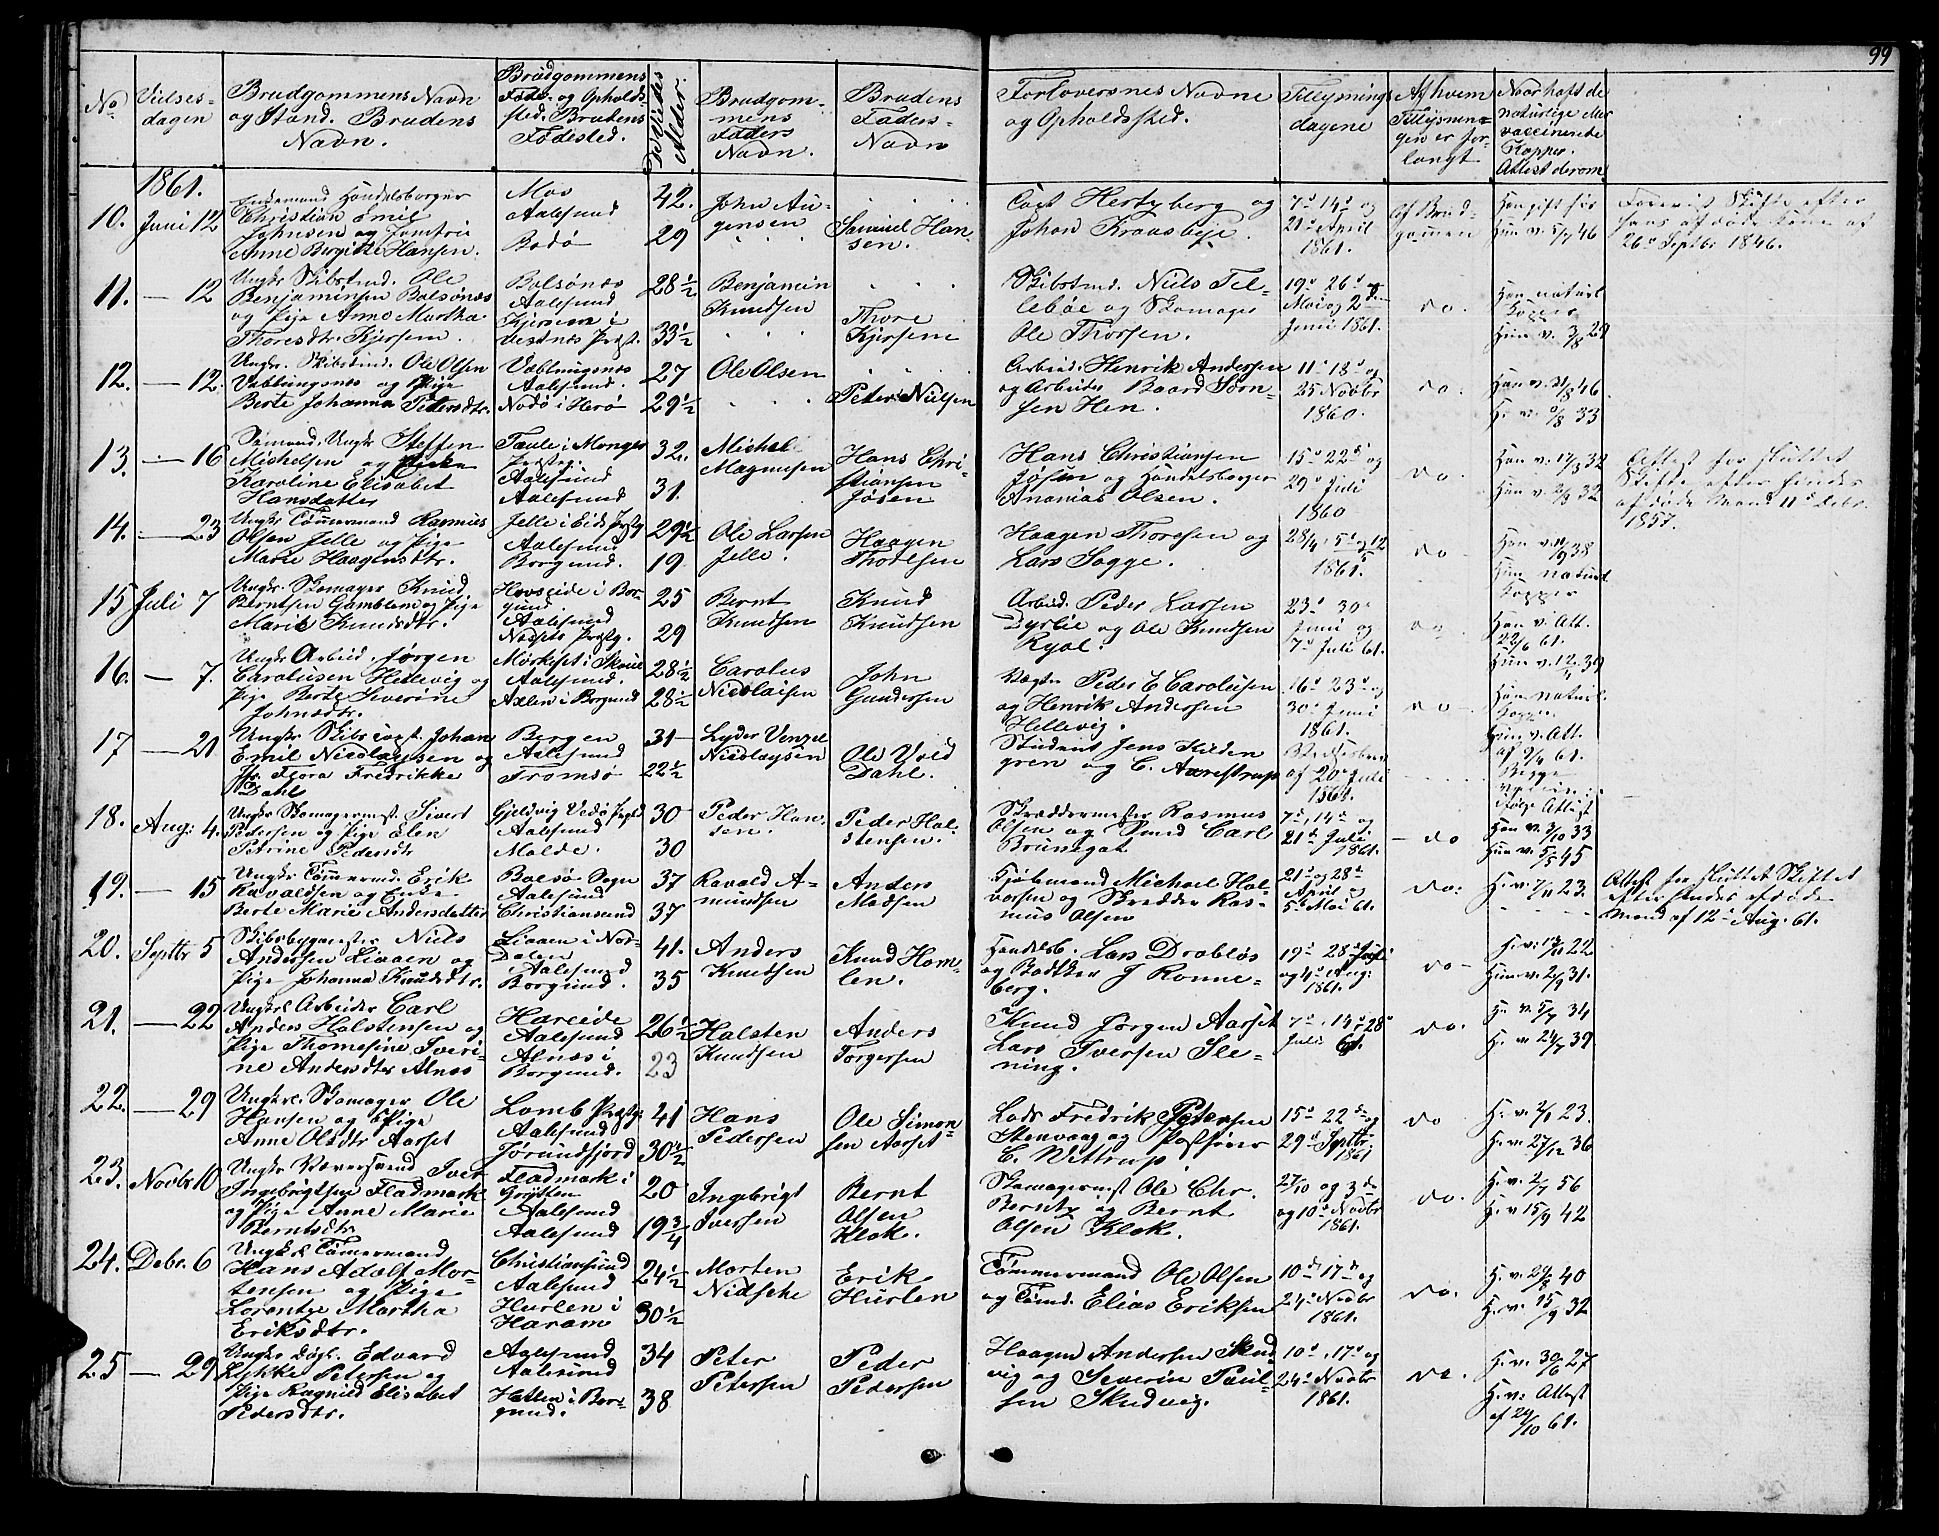 99
No
Vielses-
dagen
Brudgommens Navn
og Stand. Brudens
Navn.
Brudgommens
Føde- og Opholds-
sted. Brudens
Fødested.
Alder.
Brudgom-
mens
Faders
Navn.
Brudens
Faders-
Navn
Forlovernes Navne
og Opholdssted.
Tillysnings
dagene
Af hvem
Tillysnin-
gen er for-
langt
Naar havt de
naturlige eller
vaccinerede
Kopper.
Attest derom.
1861.
10. Juni 12
Enkemand Handelsborger
Christian Emil
Johnsen og Jomfru
Anne Birgitte Hansen.
Aalesund
Bodø
42.
29
John Au-
gensen
Samuel Han-
sen.
Capt Hertzberg og
Johan Kraasbye.
7de 14de og
21de April
1861.
Af Brud-
gommen
Han gift før
Hun v. 5/7 46
Foreviist Skifte efter
hans afdøde Kone af
26de Septbr 1846.
11. — 12
Ungkr Skibstmd. Ole
Benjaminsen Bolsønæs
og Pige Anne Martha
Thoresdtr. Kjersem.
Bolsønæs
Aalesund
Kjersem i
Vestnæs Prgst.
28½
33½
Benjamin
Knudsen
Thore
Kjersem
Skibstmd. Niels Til-
lebøe og Skomager
Ole Thorsen.
19de 26de og
Mai og 2den
Juni 1861.
do.
Han naturl
Kopper
Hun v. 3/8 29
12. — 12.
Ungkr. Skibstmd. Ole Olsen
Vablungsnæs og Pige
Berte Johanna Petersdtr.
Vablungsnæs
Aalesund.
Nodø i Herø
27
29½
Ole Olsen
Peter Nielsen
Arbeid. Henrik Andersen
og Arbeider Baard Sørn-
sen Hen.
11de 18de og
25 Novbr
1860.
do.
Han v. 21/8 46.
H. v. 9/8 33
13. — 16
Sømand. Ungkr Steffen
Michelsen og Enke
Karoline Elisabet
Hansdatter
Taule i Manger
Prgst.
Aalesund
Aalesund
32.
31.
Michel
Magnusen
Hans Chri-
stiansen
Jøsen
Hans Christiansen
Jøsen og Handelsborger
Ananias Olsen.
15de 22de og
29de Juli
1860
do.
Han v. 17/8 32
Hun v. 2/9 32
Attest for sluttet
Skifte efter hendes
afdøde Mand 11te Debr.
1857.
14. — 23
Ungkr Tømmermand Rasmus
Olsen Jelle og Pige
Marie Haagensdtr.
Jelle i Eids Prstg
Aalesund
Borgund.
29½
19
Ole Larsen
Jelle.
Haagen
Thoresen
Haagen Thoresen og
Lars Sogge.
28/4, 5te og 12/5
1861.
do
Han v. 11/9 38
Hun naturl
Kopper
15 Juli 7
Ungkr. Skomager Knud
Berntsen Gamblem og Pige
Marie Knudsdtr.
Hovseide i Bor-
gund
Aalesund
Nessets Prstg.
25
29
Bernt
Knudsen
Knud
Knudsen
Arbeid. Peder Larsen
Dyrlie og Ole Knudsen
Ryal.
23de 30de
Juni og
7de Juli 61.
do.
Han v. Att.
22/6 61.
Hun v. 12/7 39
16. — 7.
Ungkr Arbeid. Jørgen
Carolusen Hellevig og
Pige Berte Siverine
Johnsdtr.
Mørkeset i Skoue
Aalesund.
Axlen i Borgund
28½
28½
Carolus
Nicolaisen
John
Gundersen
Vægter Peder E Carolusen
og Henrik Andersen
Hellevig.
16de 23de og
30te Juni
1861.
do
Han naturl.
Kopper
Hun v. Att.
af 9/4 61.
17 — 21
Ungkr Skibscapt. Johan
Emil Nicolaysen og
Jfr Thora Fredrikke
Dahl
Bergen
Aalesund
Tromsø
31
22½
Lyder Venzel
Nicolaysen
Ole Vold
Dahl.
Student Jens Kilden
gren og C. Aarestrup
af 20de Juli
1861.
Begge
vaccin:
ifølge Attest
18. Aug: 4.
Ungkr Skomagermst. Sivert
Pedersen og Pige Elen
Petrine Pedersdtr
Gjeldvig Vedø Prgld
Aalesund
Molde.
30
30
Peder Han-
sen.
Peder Hal-
stensen.
Skræddermester Rasmus
Olsen og Smed Carl
Brunsgat
7de, 14de og
21de Juli
1861.
do
Han v. 2/10 33
Hun v. 5/8 45
19. — 15
Ungkr Tømmermd. Erik
Ravaldsen og Enke
Berte Marie Andersdatter
Bolsø Sogn
Aalesund
Christiansund
37
37
Ravald A-
mundsen
Anders
Madsen
Tjøbmand Michael Hal-
vorsen og Skredder Ras-
mus Olsen
21de og 28de
April og
5te Mai 61.
do:
H. v: 7/11 23.
Attest for sluttet Skiftet
efter hendes afdøde
Mand af 12te Aug. 61.
20. Septbr 5
Skibsbygmester Niels
Andersen Liaaen og
Pige Johanna Knudsdtr.
Liaaen i Nor-
Dalen
Aalesund
Borgund.
41.
35
Anders
Knudsen
Knud Ham-
len.
Handelsb. Lars Drabløs
og Bødtker J Ronne-
berg.
19de 28de Juli
og 4de Aug:
1861.
do
H. v: 13/10 22
Hun v. 2/9 31.
21. — 22
Ungkrl Arbeider Carl
Anders Halstensen og
Pige Thomesine Iveri-
ne Andersdtr Alnæs
Hareide
Aalesund
Alnæs i
Borgund.
26½
23
Halsten
Knudsen
Anders
Torgersen
Knud Jørgen Aarset
Lars Iversen Sle-
ning.
7de, 14de 28de
Juli 61.
do.
H. v. 5/7 34
H. v. 24/7 39
22. — 29
Ungkrl. Skomager Ole
Hansen og Pige
Anne Olsdtr Aarset
Lomb Prstg:
Aalesund
Jørundfjord
41
30½
Hans
Pedersen
Ole Simon-
sen Aarset
Lods Fredrik Petersen
Stenvaag og Postfører
C. Wittrup
15de 22de og
29de Septbr
1861
do
H. v: 2/1 23.
H. v: 27/12 36
23. Novbr 10
Ungkr Væversvend Iver
Ingebrigtsen Fladmark
og Pige Anne Marie
Berntsdtr
Fladmark i
Grytten
Aalesund
Aalesund
20
19¾
Ingebrigt
Iversen
Bernt
Olsen
Klok.
Skomagermst Ole Chr.
Berntz og Bernt
Olsen Klok.
27/10 og 3de
og 10de Novbr
1861.
do.
H. v. 2/7 56
H. v 15/9 42
24. Debr. 6
Ungkrl Tømmermand
Hans Adolf Mor-
tensen og Pige
Lorentze Martha
Eriksdtr.
Christiansund
Aalesund
Hurlen i
Haram
24½
30½
Morten
Nidsche
Erik
Hurlen
Tømmermand Ole Olsen
og Tømd. Elias Eriksen
10de 17de og
24de Novbr
1861.
do.
H. v. 21/8 40
H. v. 15/9 32
25 — 29
Ungkr Dagl. Edvard
Lykke Petersen og
Pige Ragnild Elisabet
Pedersdtr.
Aalesund
Aalesund
Hatlen i Bor-
gund.
34
38
Peter
Petersen
Peder
Pedersen
Haagen Andersen Skod
vig og Severin Paul-
sen Skudvig.
10de, 17de og
24de Novbr
1861.
do.
H. v. 30/6 27
H. v: Attest
af 24/10 61.